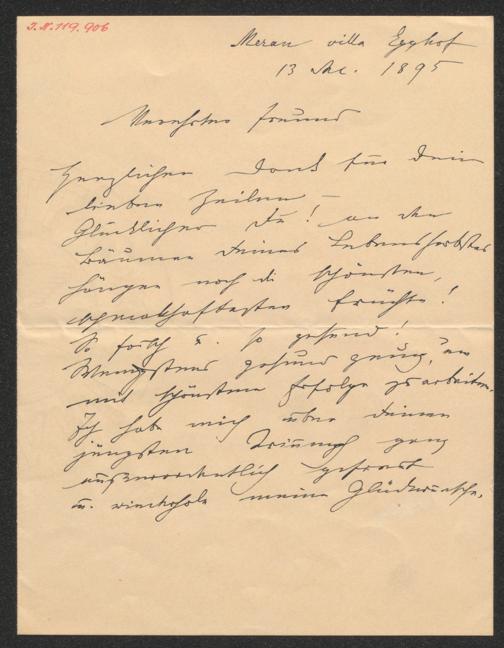 J.N. 119.906
Meran villa Egghof
13 Dec. 1895
Verehrter Freund
Herzlichen Dank für Dein
lieben Zeilen –
Glücklicher Du! an den
Bäumen Deines Lebensherbstes
hängen noch die schönsten,
schmackhaftesten Früchte!
So frisch u. so gesund!
Wenigstens gesund genug, um
mit schönstem Erfolge zu arbeiten.
Ich habe mich über Deinen
jüngsten Triumph ganz
außerordentlich gefreut
u. wiederhole meine Glückwünsche.